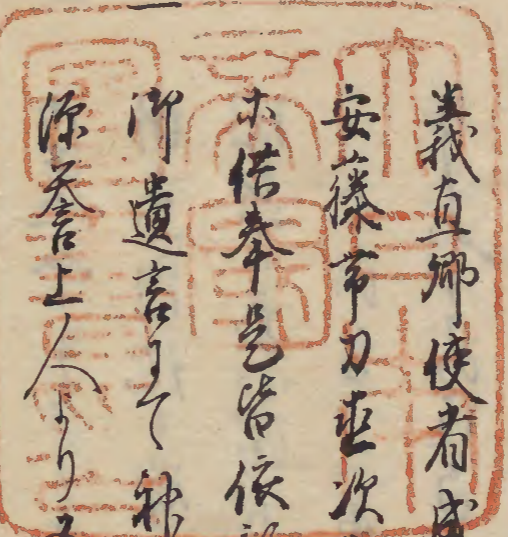 義直卿使者成
安藤帯刀直次
供奉是皆依
御遺言にて
源誉上人より